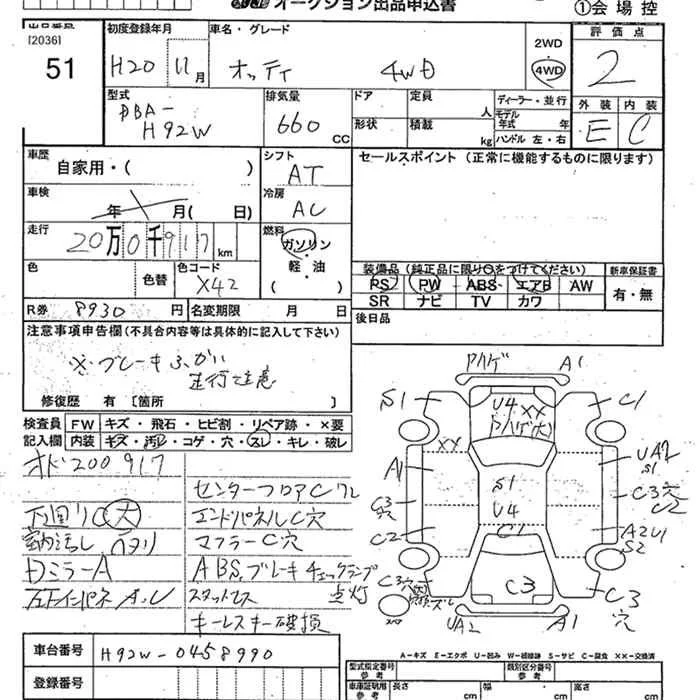 オークション出品申込書
①会場控
出品番号
[2036]
51
初度登録年月
H20 11月
車名・グレード
オッティ 4WD
2WD
4WD
評価点
2
型式
DBA-
H92W
排気量
660
CC
ドア
形状
定員
人
積載
kg
ディーラー・並行
モデル
年式 年
ハンドル 左・右
外装
E
内装
C
車歴
自家用・( )
シフト
AT
セールスポイント (正常に機能するものに限ります)
車検
年 月( 日)
冷房
AC
走行
20万0千917 km
燃料
ガソリン
軽・油
( )
色
色替
色コード
X42
装備品 (純正品に限り○をつけてください)
新車保証書
PS PW ABS エアB AW
SR ナビ TV カワ
有・無
R券 8930 円
名変期限 月 日
後日品
注意事項申告欄(不具合内容等は具体的に記入して下さい)
※ブレーキふかい
走行注意
修復歴 有 〔箇所 〕
検査員
記入欄
FW キズ・飛石・ヒビ割・リペア跡・×要
内装 キズ・汚レ・コゲ・穴・スレ・キレ・破レ
オド200917
センターフロアCワレ
下回りC大
エンドパネルC穴
マフラーC穴
DミラーA
ABS,ブレーキチェックランプ
スタットレス 点灯
キーレスキー破損
車台番号
H92W-0458990
登録番号
A1
S1
C1
U4 XX
XX
UA2
S1
A1
S1
U4
C3
穴
C2
C3穴
C2
C1
A2U1
S2
C3
C3穴
スペア
C3
穴
UA2
A1
A-キズ E-エクボ U-凹み W-補修跡 S-サビ C-腐食 ××-交換済
型式指定番号
参考
類別区分番号
参考
車庫証明用
参考
長さ cm
幅 cm
高さ cm